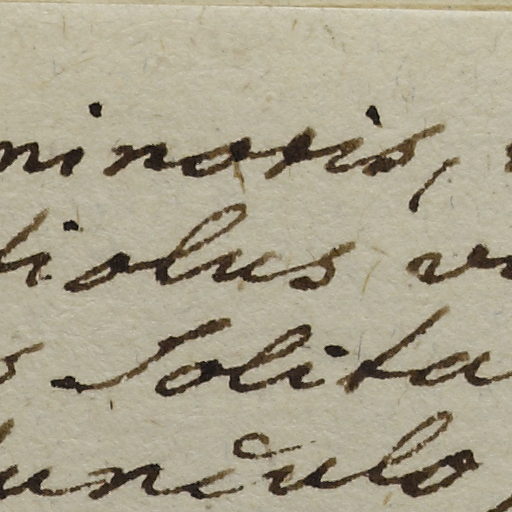 minosis,
tiolus
s Solita
dunculo,